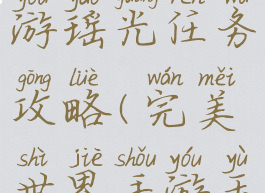 yóu yáo guāng rèn wù
游瑶光任务
gōng lüè wán měi
攻略(完美
shì jiè shǒu yóu yù
世界手游玉